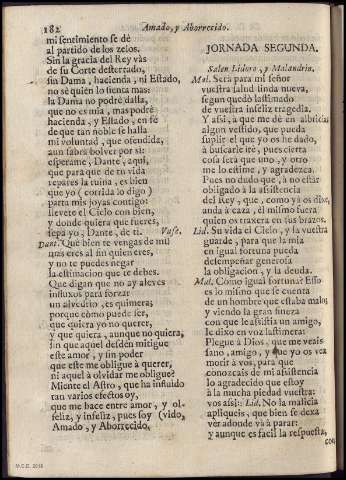 182 Amado, y Aborrecido.
mi sentimiento se dè
al partido de los zelos.
Sin la gracia del Rey vàs
de su Corte desterrado,
sin Dama, hacienda, ni Estado,
no sè quièn lo sienta mas:
la Dama no podrè darla,
que no es mia, mas podrè
hacienda, y Estado, en fé
de que tan noble se halla
mi voluntad, que ofendida,
aun sabrà bolver por sì:
esperame, Dante, aqui,
que para que de tu vida
repares la ruina, es bien
que yo (corrida lo digo)
parta mis joyas contigo:
llevete el Cielo con bien,
y donde quiera que fueres,
sepa yo, Dante, de ti. Vase.
Dant. Què bien te vengas de mi!
mas eres al fin quien eres,
y no te puedes negar
la estimacion que te debes.
Que digan que no ay aleves
influxos para forzar
un alvedrio, es quimera;
porque còmo puede ser,
que quiera yo no querer,
y que quiera, aunque no quiera,
sin que aquel desdèn mitigue
este amor, y sin poder
que este me obligue à querer,
ni aquel à olvidar me obligue?
Miente el Astro, que ha influido
tan varios efectos oy,
que me hace entre amor, y ol-
feliz, y infeliz, pues soy (vido,
Amado, y Aborrecido.
JORNADA SEGUNDA.
Salen Lidoro, y Malandrin.
Mal. Serà para mi señor
vuestra salud linda nueva,
segun quedò lastimado
de vuestra infeliz tragedia.
Y assi, à que me dè en albricias
algun vestido, que pueda
suplir el que yo os he dado,
à buscarle irè, pues cierta
cosa serà que uno, y otro
me lo estime, y agradezca.
Pues no dudo que, à no estàr
obligado à la assistencia
del Rey, que, como yà os dixe,
anda à caza, èl mismo fuera
quien os traxera en sus brazos.
Lid. Su vida el Cielo, y la vuestra
guarde, para que la mia
en igual fortuna pueda
desempeñar generosa
la obligacion, y la deuda.
Mal. Como igual fortuna? Esso
es lo mismo que se cuenta
de un hombre que estaba malo,
y viendo la gran fineza
con que le assistia un amigo,
le dixo en voz lastimera:
Plegue à Dios, que me veais
sano, amigo, y que yo os vea
morir à vos, para que
conozcais de mi assistencia
lo agradecido que estoy
à la mucha piedad vuestra:
vos assi:: Lid. No la malicia
apliqueis, que bien se dexa
ver adonde và à parar:
y aunque es facil la respuesta,
con
M.C.D. 2018